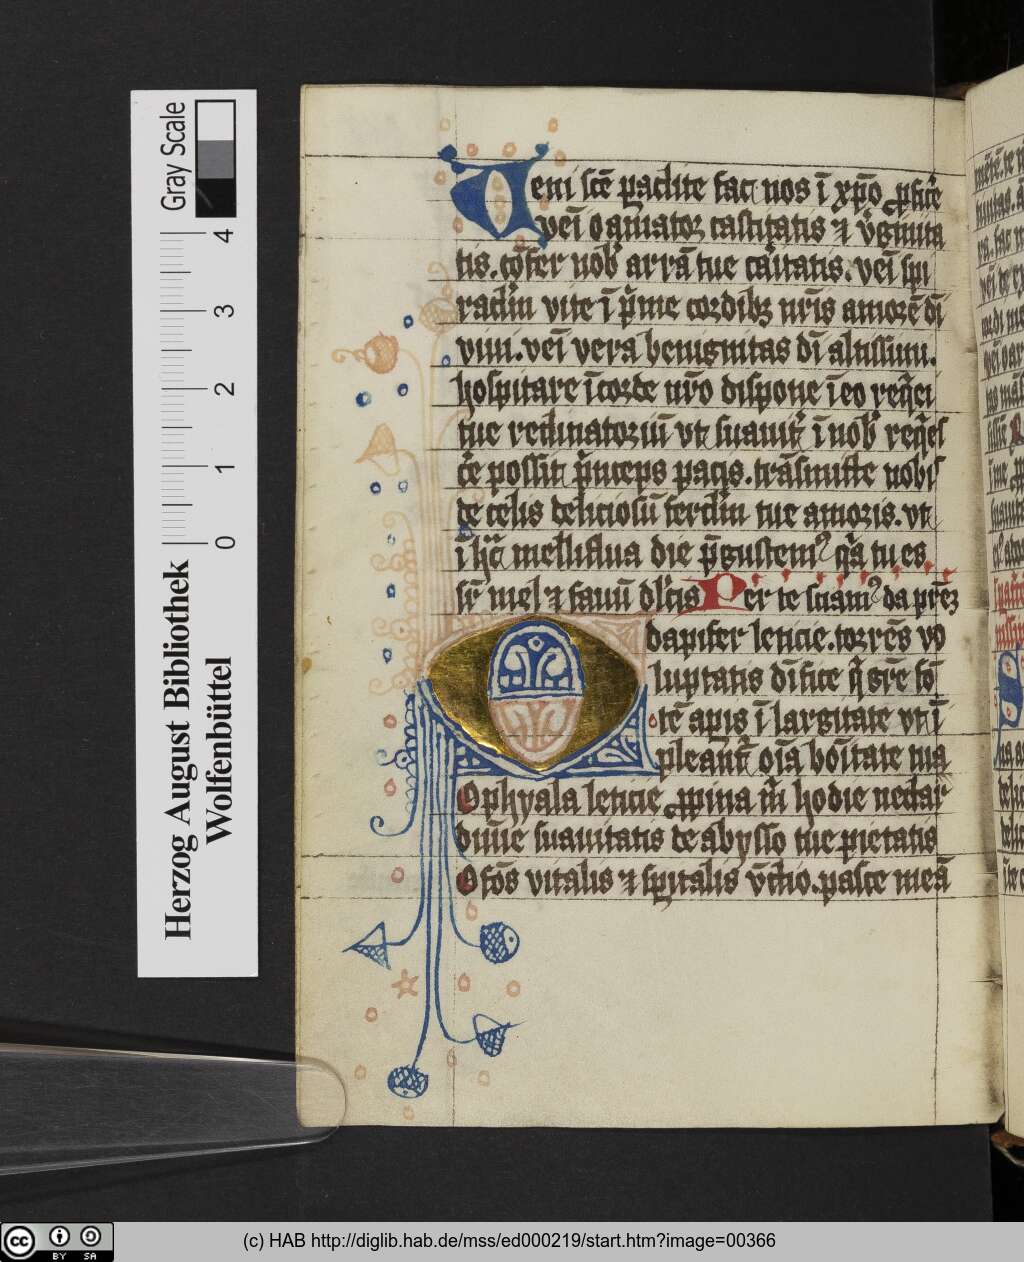 Gray Scale
4
3
2
1
0
Herzog August Bibliothek
Wolfenbüttel
Veni scē paclite fac nos ī xp̄o ꝓfice
veī o amator castitatis ⁊ v̓gīnita
tis. cōfer nob̓ arrā tue caritatis. veī spi
raclm̄ vite ī p̄me cordibꝫ nrīs amorē di
vini. veī vera benignitas dī altissimi.
hospitare ī corde nr̄o dispone ī eo reqͥci
tue reclinatoriū vt suauit̓ ī nob̓ reqͥes
ce possit p̄nceps pacis. trāsmitte nobis
de celis deliciosū fercl̄m tue amoris. vt
ī hͣc mellіflua die p̄gustem̓ qͣ tu es
sr̄ mel ⁊ fauū dl̓cis Per te suam̓ da pr̄eꝫ
dapifer leticie. torrēs vo
luptatis dīfice
tē apis ī largitate vt ī
pleant̓ oīa boītate tua
O phyala leticie ꝓpina m̓ hodie nectar
diuīe suauitatis de abysso tue pietatis
O fōs vitalis ⁊ spitalis v̄ctio. pasce meā
(c) HAB http://diglib.hab.de/mss/ed000219/start.htm?image=00366
cc BY SA